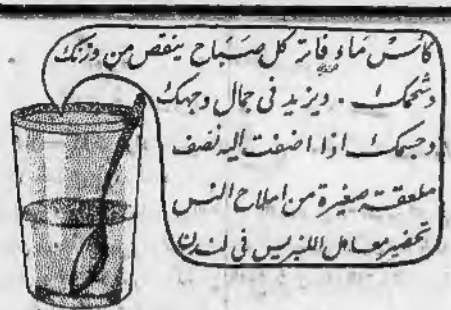 كأس ماء فاتر كل صباح ينقص من وزنك
وشحمك . ويزيد في جمال وجهك
وجسمك اذا اضفت اليه نصف
ملعقة صغيرة من املاح النس
تحضير معامل اللنبريس في لندن